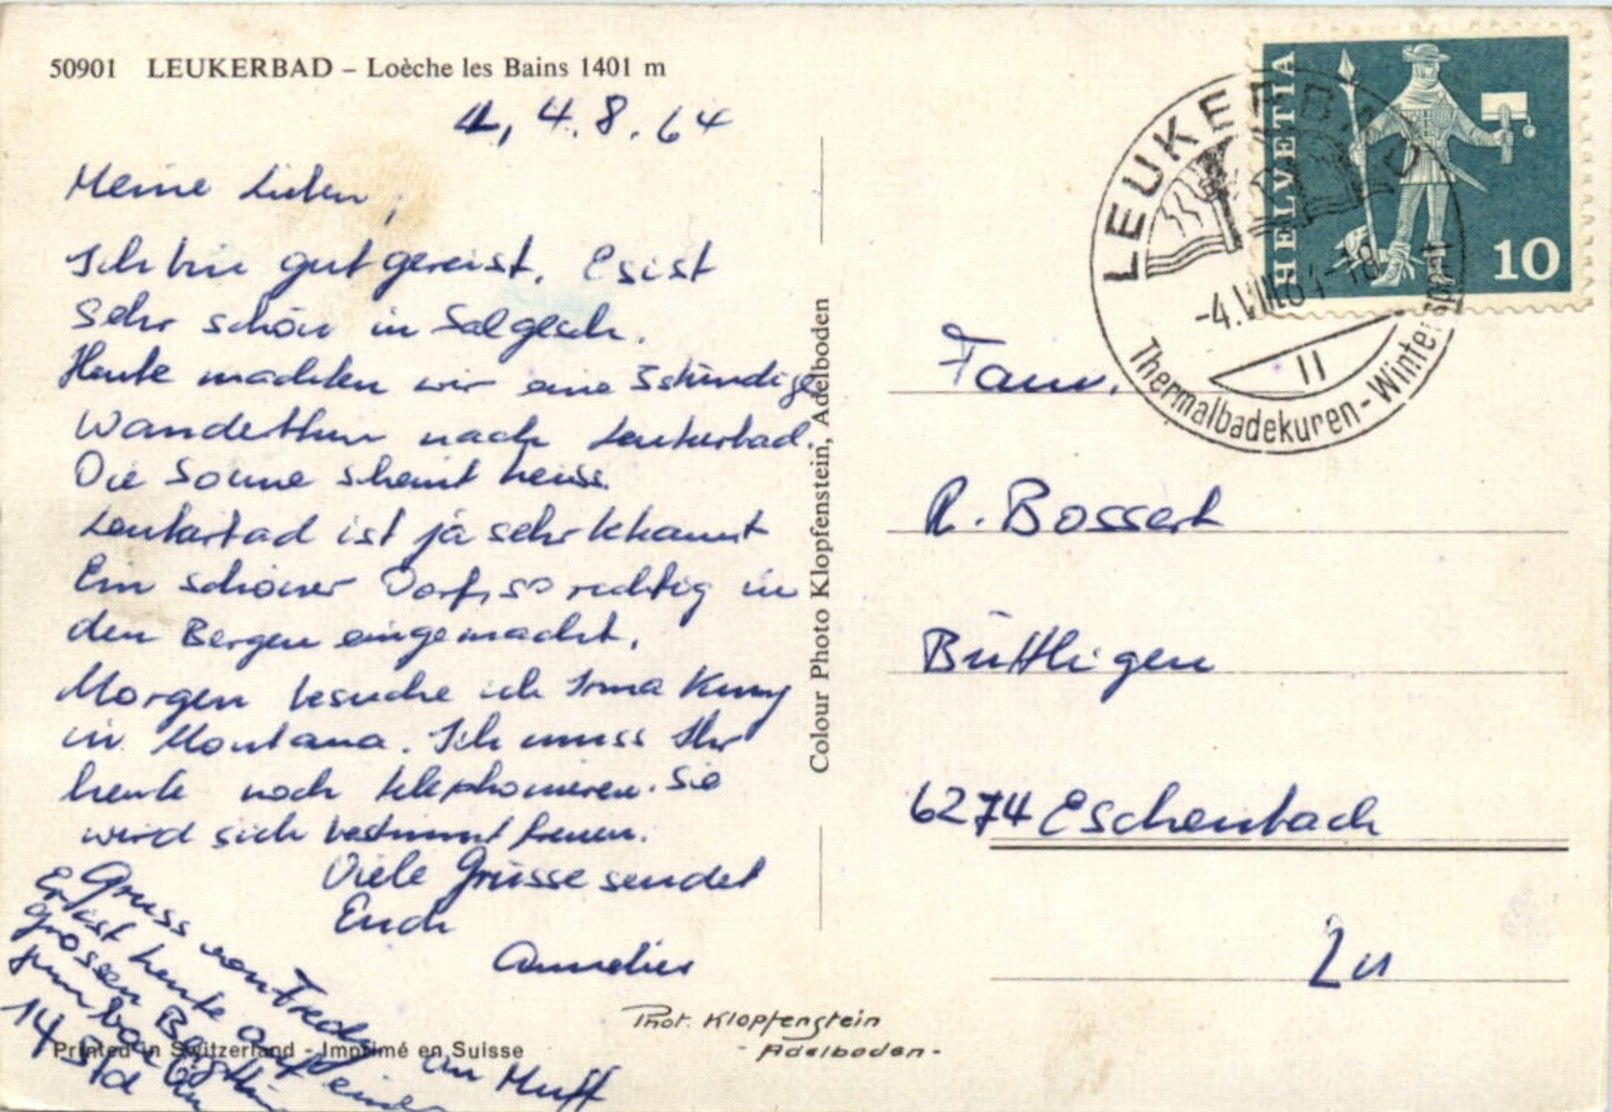 50901 LEUKERBAD – Loèche les Bains 1401 m
4.8.64
Meine Lieben,
Ich bin gut gereist. Es ist
sehr schön in Salgesch.
Heute machten wir eine stündige
Wander nach Leukerbad.
Die Sonne scheint heiss.
Leukerbad ist ja sehr bekannt
Ein schöner Dorf, so richtig in
den Bergen eingemacht.
Morgen besuche ich Irma
in Montana. Ich muss Ihr
heute noch telephonieren. Sie
wird sich bestimmt freuen.
Viele Grüsse sendet
Euch
Annelies
Gruss von Fredy an Muff
Er ist heute auf einer
grossen
14 Std
Printed in Switzerland - Imprimé en Suisse
Colour Photo Klopfenstein, Adelboden
Phot. Klopfenstein
- Adelboden -
HELVETIA
10
LEUKERBAD
-4.VIII.64-18
II
Thermalbadekuren-Wintersport
Fam.
R. Bossert
Büttligen
6274 Eschenbach
Lu